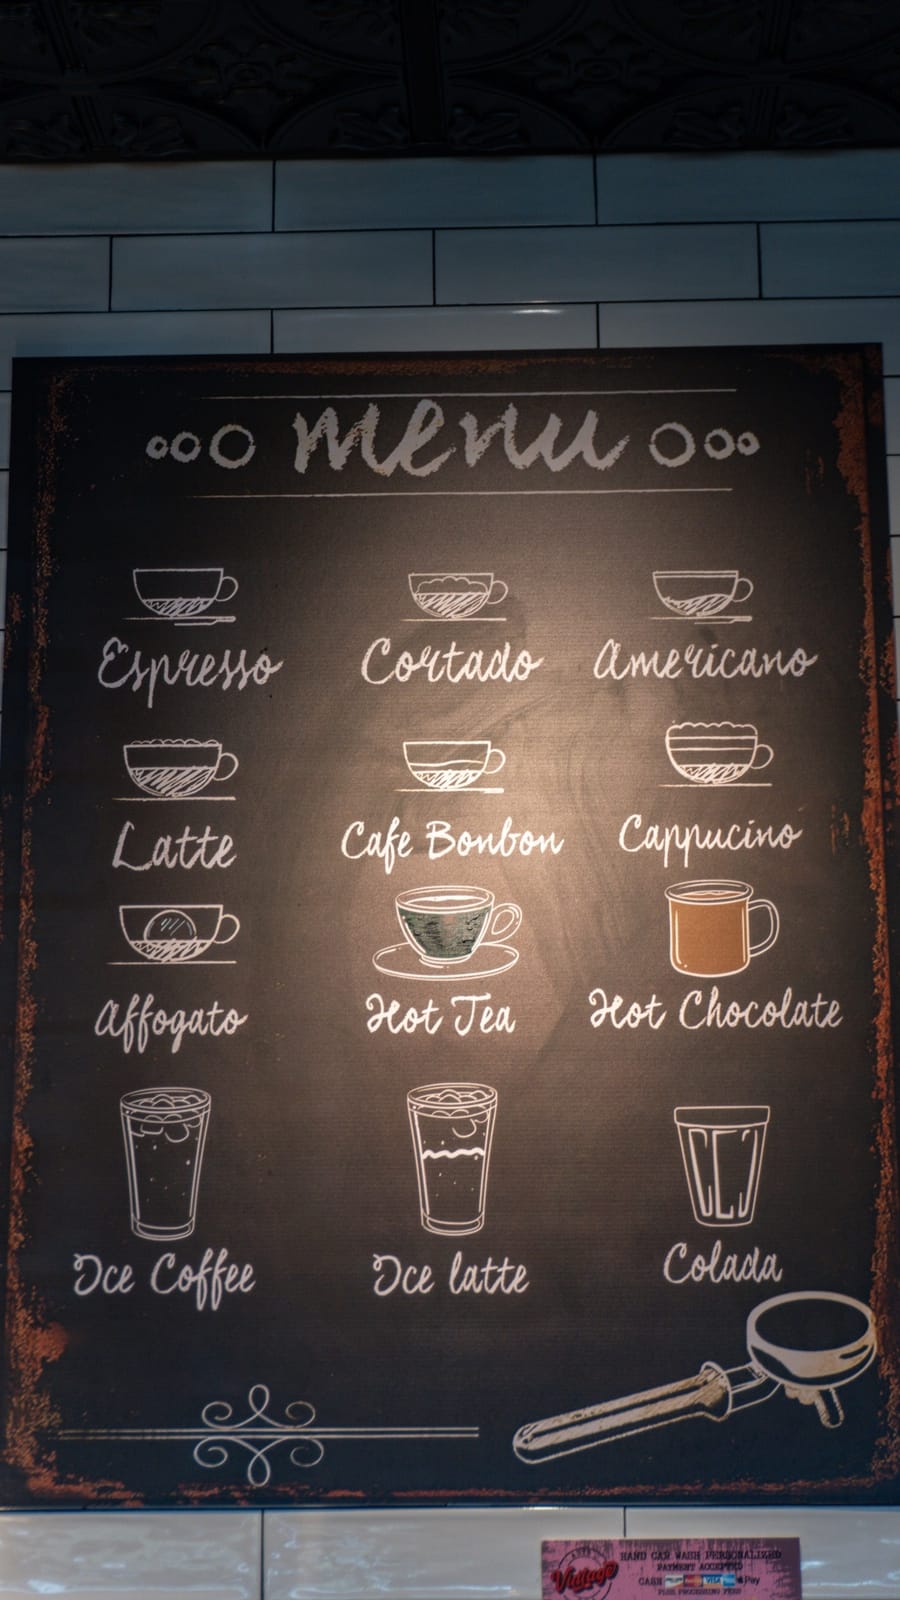 menu
Espresso Cortado Americano
Latte Cafe Bonbon Cappucino
Affogato Hot Tea Hot Chocolate
Ice Coffee Ice latte Colada
Vintage
HAND CAR WASH PERSONALIZED
PAYMENT ACCEPTED
CASH VISA Pay
PLUS PROCESSING FEES